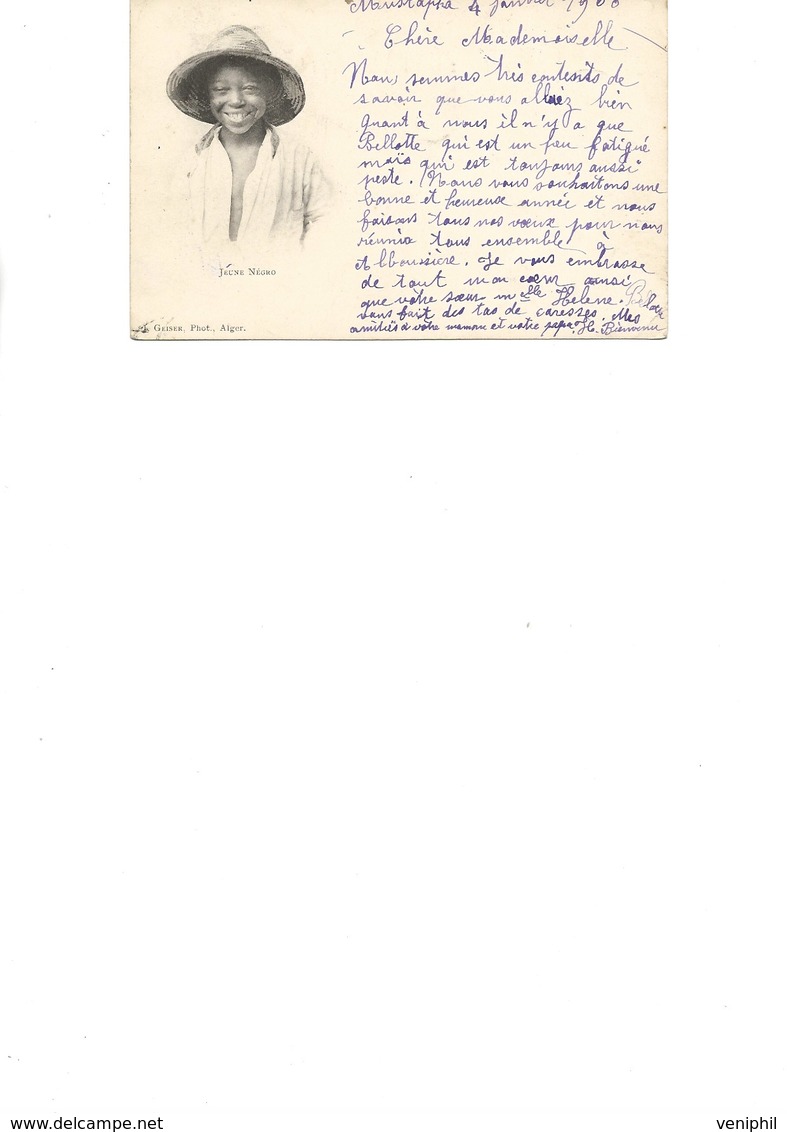 Mustapha 4 Janvier 1900
Chère Mademoiselle
Nous sommes très contents de
savoir que vous alliez bien
quant à nous il n'y a que
Bellotte qui est un peu fatigué
mais qui est toujours aussi
peste. Nous vous souhaitons une
bonne et heureuse année et nous
faisons tous nos vœux pour nous
réunir tous ensemble à
Alboussière. Je vous embrasse
de tout mon cœur ainsi
que vôtre sœur melle Helene.
vous fait des tas de caresses. Mes
amitiés à vôtre maman et votre papa. H. Bienvenu
Jeune Négro
Geiser, Phot., Alger.
delcampe.net
veniphil